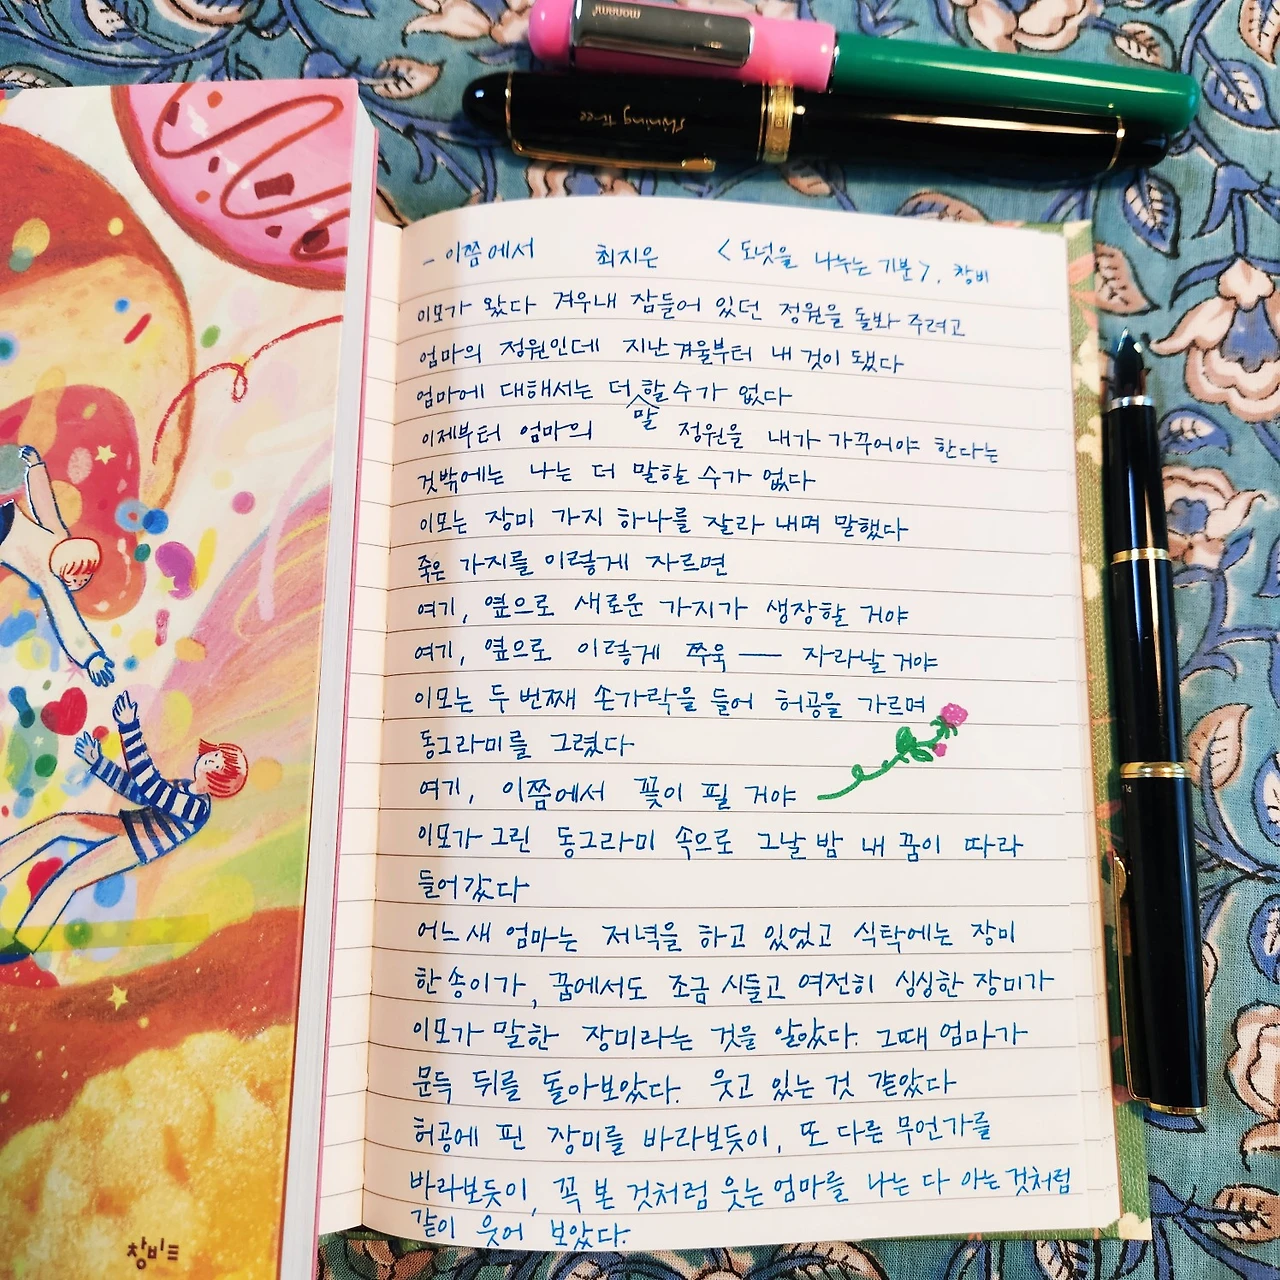 monami
Shining tree
- 이쯤에서 최지은 <도넛을 나누는 기분>, 창비
이모가 왔다 겨우내 잠들어 있던 정원을 돌봐 주려고
엄마의 정원인데 지난겨울부터 내 것이 됐다
엄마에 대해서는 더 말할 수가 없다
이제부터 엄마의 정원을 내가 가꾸어야 한다는
것밖에는 나는 더 말할 수가 없다
이모는 장미 가지 하나를 잘라 내며 말했다
죽은 가지를 이렇게 자르면
여기, 옆으로 새로운 가지가 생장할 거야
여기, 옆으로 이렇게 쭈욱 — 자라날 거야
이모는 두 번째 손가락을 들어 허공을 가르며
동그라미를 그렸다
여기, 이쯤에서 꽃이 필 거야
이모가 그린 동그라미 속으로 그날 밤 내 꿈이 따라
들어갔다
어느새 엄마는 저녁을 하고 있었고 식탁에는 장미
한 송이가, 꿈에서도 조금 시들고 여전히 싱싱한 장미가
이모가 말한 장미라는 것을 알았다. 그때 엄마가
문득 뒤를 돌아보았다. 웃고 있는 것 같았다
허공에 핀 장미를 바라보듯이, 또 다른 무언가를
바라보듯이, 꼭 본 것처럼 웃는 엄마를 나는 다 아는 것처럼
같이 웃어 보았다.
창비